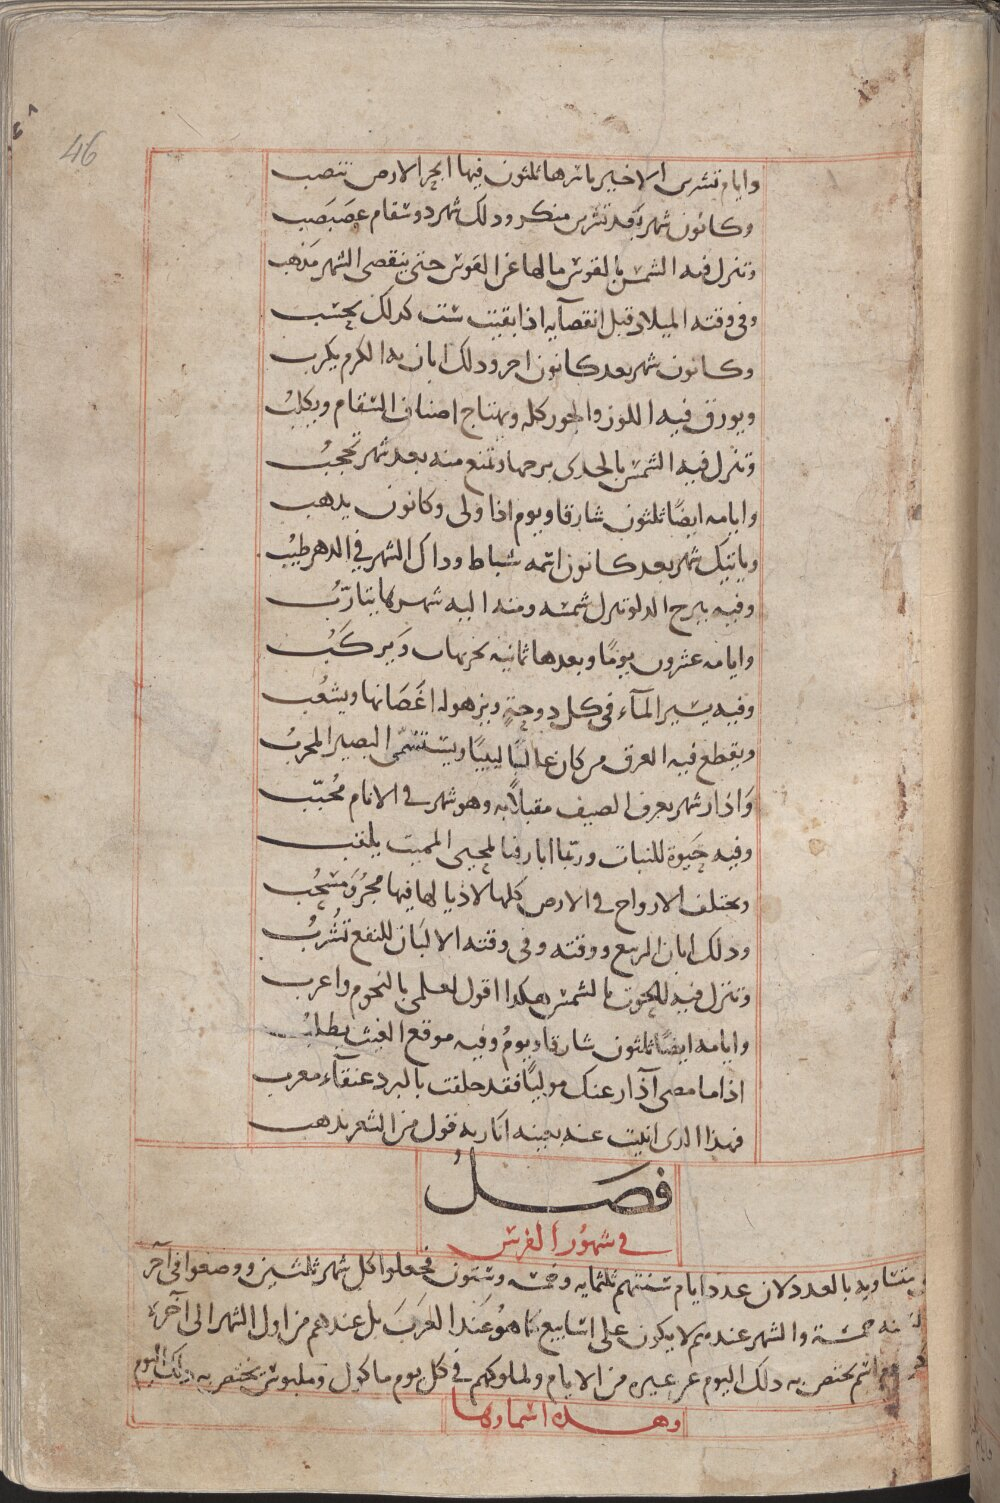 46
وايام تشرين الاخير باثرها ثلثون فيها ابحر الارض تنصب
وكانون شهر بعد تشرين منكر ودلك شهر دو سقام عصبصب
وتنزل فيه الشمس بالقوس مالها عن القوس حتى ينقضى الشهر مذهب
وفى وقته الميلاد قبل انقضآيه اذا بقيت ست كدلك يحسب
وكانون شهر بعد كانون اخر ودلك ابان به الكرم يكرب
ويورق فيه اللوز والجوز كله ويهتاج اصناف السقام ويكلب
وتنزل فيه الشمس بالجدى برجها وتمنع منه بعد شهر تحجب
وايامه ايضًا ثلثون شارقا ويوم اذا ولى وكانون يدهب
وياتيك شهر بعد كانون اسمه شباط وداك الشهر في الدهر طيب
وفيه ببرج الدلو تنزل شمسه ومنه اليه شهرها يتارب
وايامه عشرون يومًا وبعدها ثمانية وَيركَبُ
وفيه يسير المآء فى كل دوحةٍ ويزهو له اغصَانها ويشعب
ويقطع فيه العرق من كان عالمًا لبيبًا ويستمشى البصير المجرب
وَاذار شهر يعرف الصيف مقبلاً به وهو شهر في الانام مُحبّب
وفيه حَيوة للنبات وربما المحيى المميت يلقب
وتختلف الارواح في الارض كلها لاذيالها فيها مجرٌ ومسحب
ودلك ابان الربيع ووقته وفى وقته الالبَان للنفع تُشرب
وتنزل فيه الحوت بالشمس هكدا اقول لعلمى بالنجوم واعرب
وايامه ايضًا ثلثون شارقا ويومٌ وفيه موقع الغيث يطلب
اذا ما مضى آذار عنك موليًا فقد حلقت بالبرد عنقآء مغرب
فهذا الدى انبيت عنه بعينه اتا به قول من الشعر يدهب
فصل
في شهور الفرس
متساويه بالعدد لان عدد ايام سنتهم ثلثمايه وخمسه وستون فجعلوا كل شهر ثلثين ووضعوا فى آخر
خمسة والشهر عندهم لا يكون على اسابيع كما هُو عند العَرَبَ بل عندهم من اول الشهر الى آخره
اسم يختص به دلك اليوم عن غيره من الايام ولملوكهم في كل يوم ماكول وملبوس يختص به دلك اليوم
وهده اسماوها